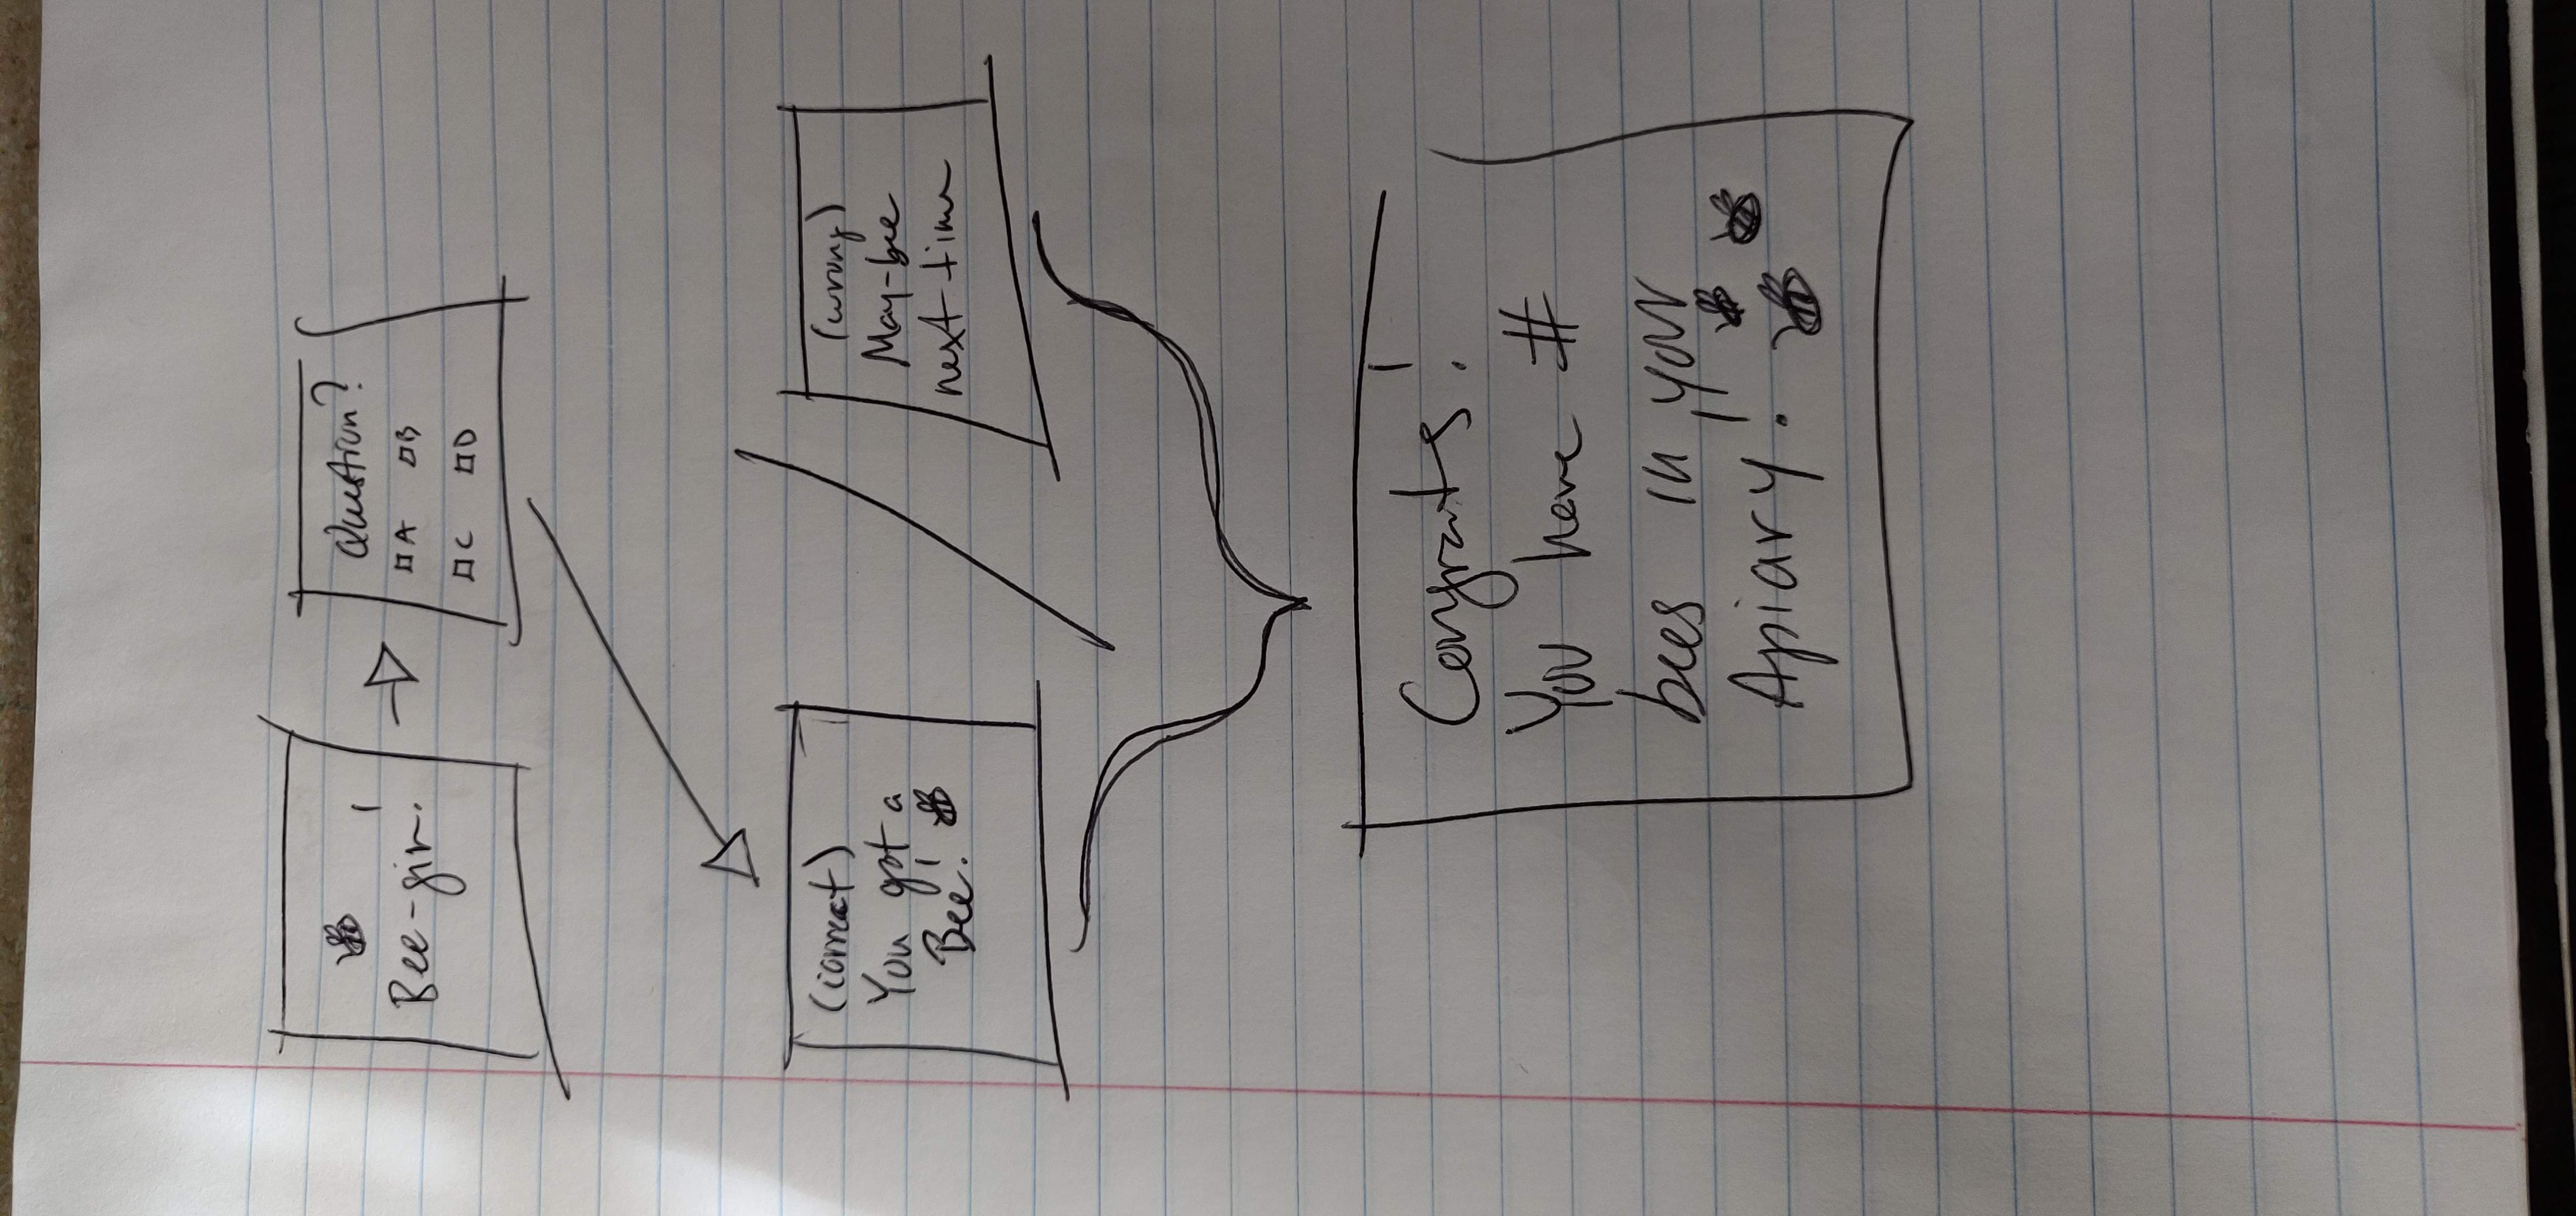 Bee-gin!
Question?
A B
C D
(correct)
You got a
Bee!
(wrong)
May-bee
next time
Congrats!
You have #
bees in your
Apiary!